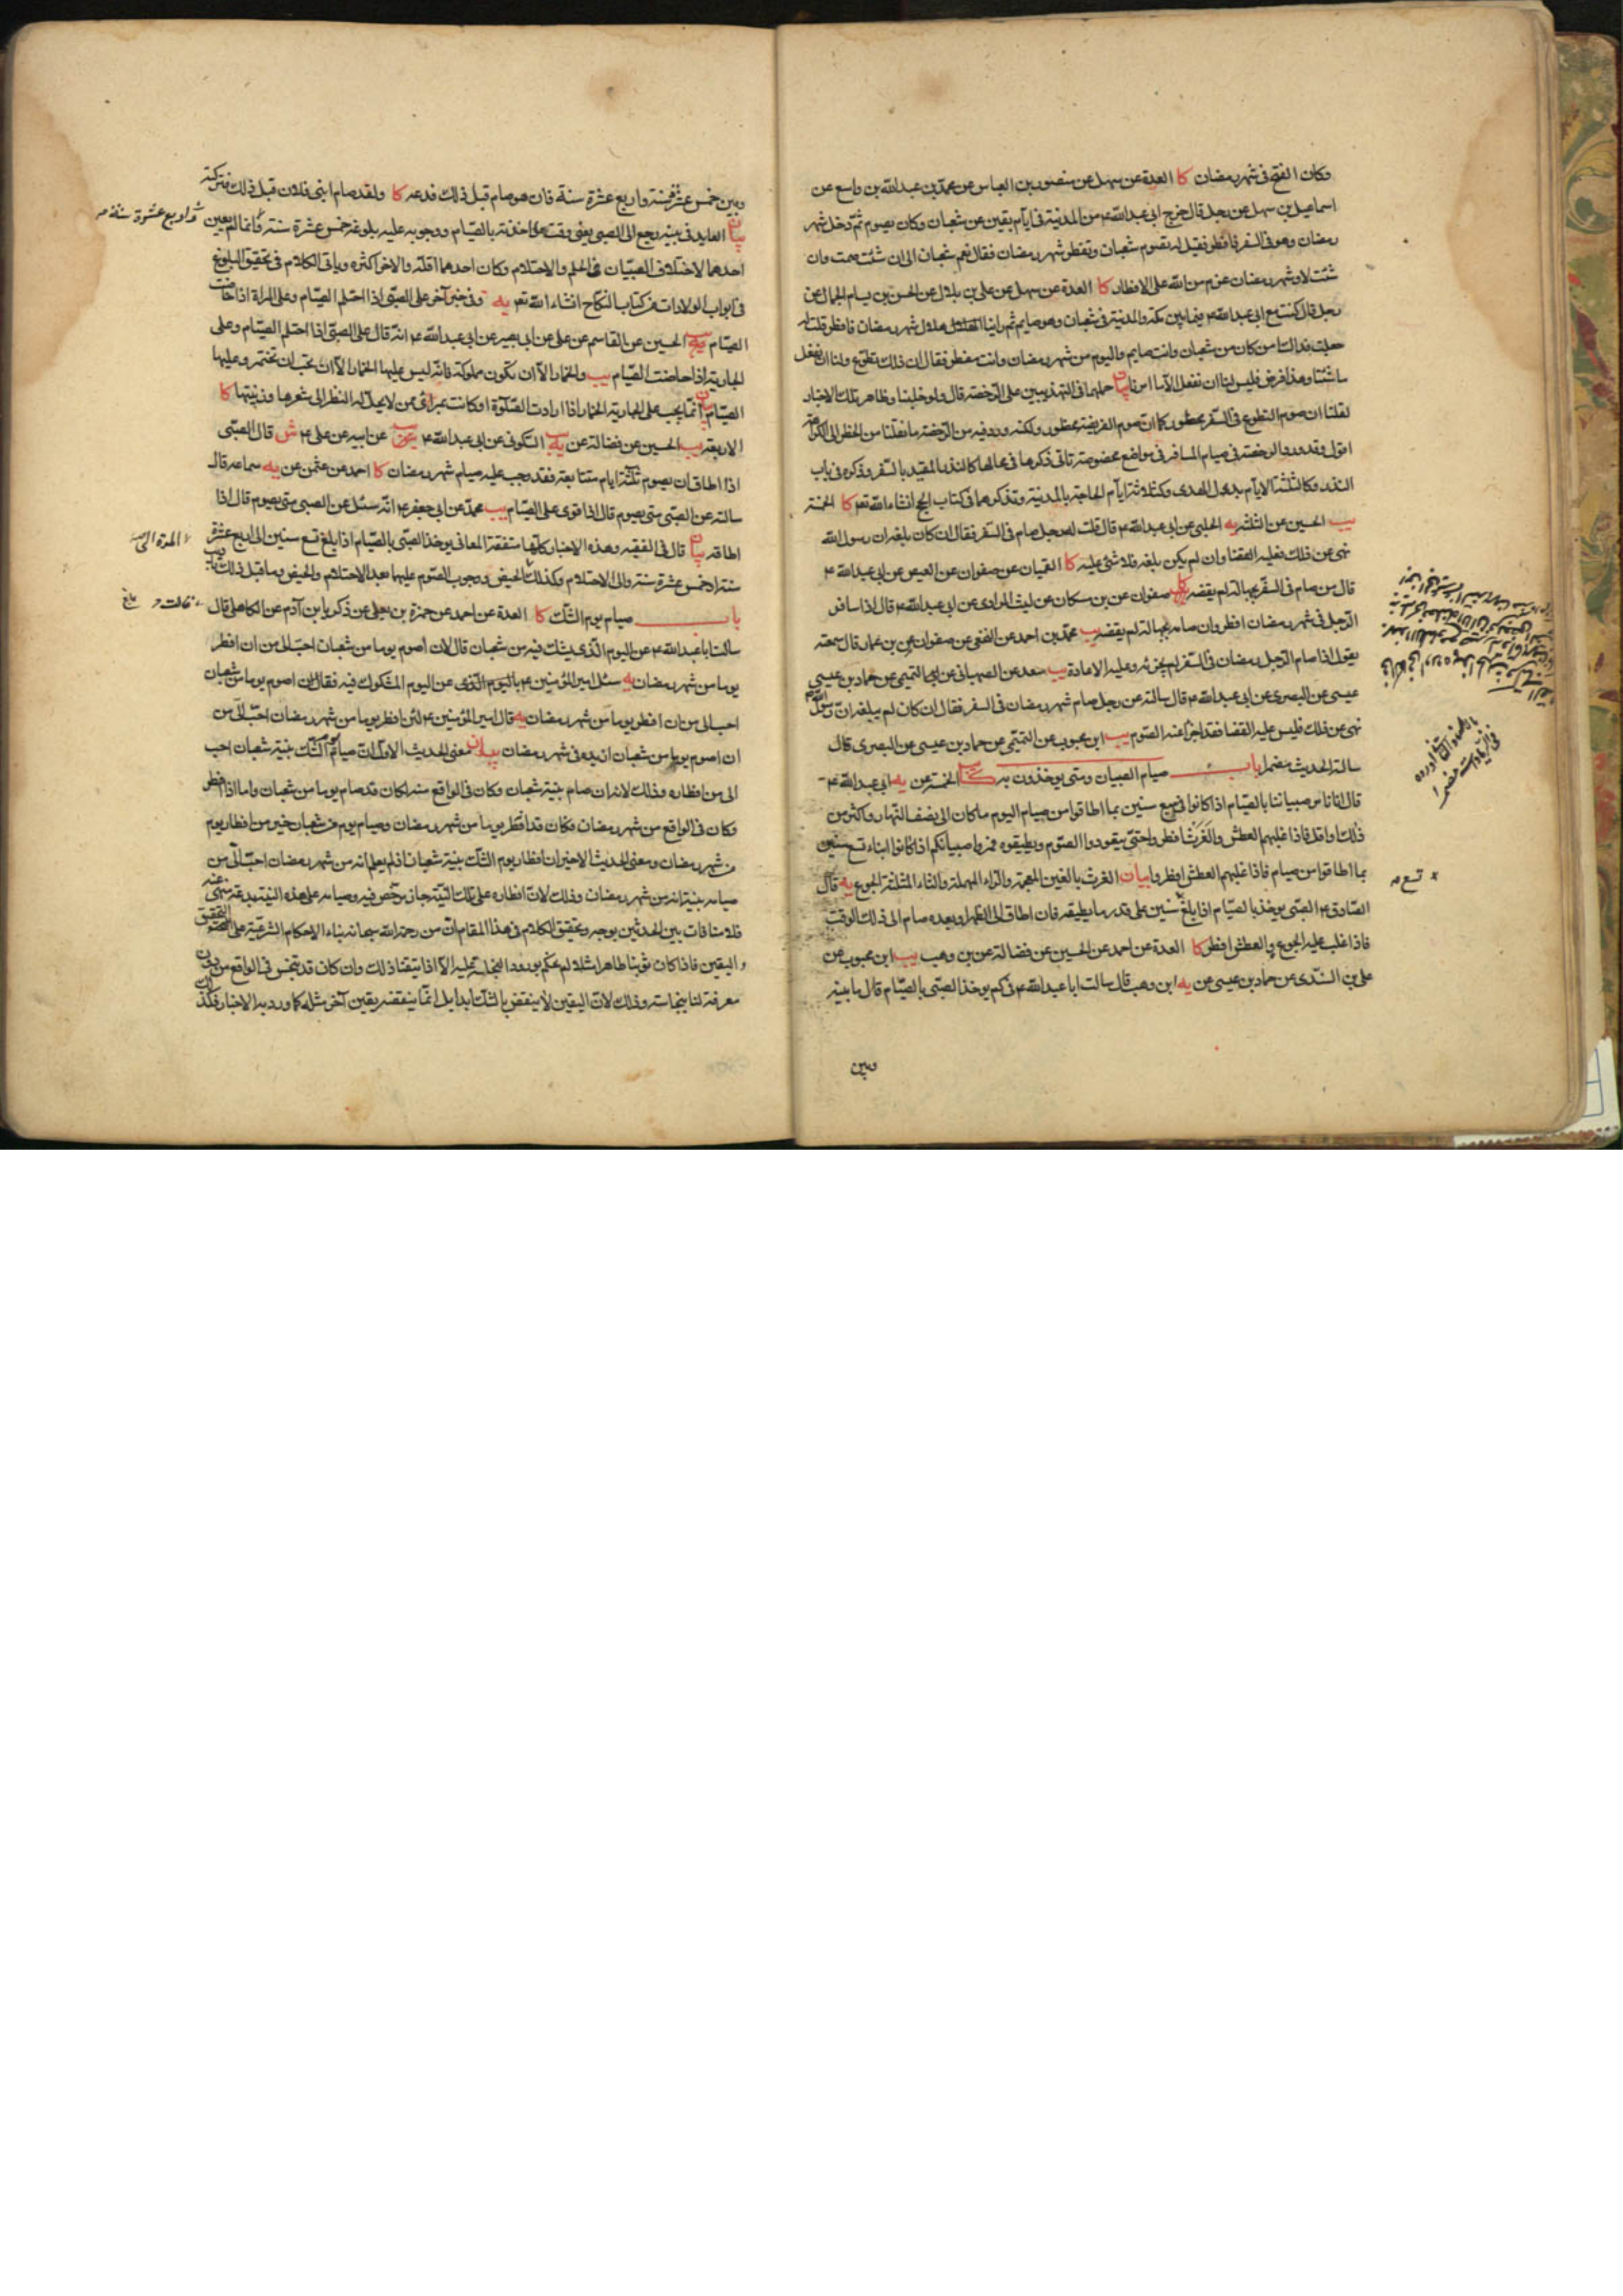 وكان الفتح فى شهر رمضان كا العدة عن سهل عن منصور بن العباس عن محمد بن عبدالله بن واسع عن
اسماعيل بن سهل عن رجل قال خرج ابى عبدالله ع من المدينة فى ايام بقين من شعبان وكان يصوم ثم دخل شهر
رمضان وهو فى السفر فافطر فقيل له تصوم شعبان وتفطر شهر رمضان فقال نعم شعبان الى ان شئت صمت وان
شئت لا وشهر رمضان عزم من الله على الافطار كا العدة عن سهل عن على بن بلال عن الحسن بن بسام الجمال عن
رجل قال كنت مع ابى عبدالله ع فيما بين مكة والمدينة فى شعبان وهو صايم ثم راينا هلال شهر رمضان فافطر فقلت له
جعلت فداك امس كان من شعبان وانت صايم واليوم من شهر رمضان وانت مفطر فقال ان ذلك تطوع ولنا ان نفعل
ما شئنا وهذا فرض فليس لنا ان نفعل الا ما امرنا بيان حملهما فى التهذيبين على الرخصة قال ولو خلينا وظاهر تلك الاخبار
لقلنا ان صوم التطوع فى السفر محظور كما ان صوم الفريضة محظور ولكنه ورد فيه من الرخصة ما نقلنا من الحظر الى الكراهة
اقول وقد ورد الرخصة فى صيام المسافر فى مواضع مخصوصة تاتى ذكرها فى محالها كالنذر المقيد بالسفر وذكره فى باب
النذر وكالثلثة الايام بدل الهدى وكثلاثة ايام الحاجة بالمدينة وتذكر هما فى كتاب الحج انشاء الله تعم كا الخمسة
يب الحسين عن الثلثة يه الحلبى عن ابى عبدالله ع قال قلت له رجل صام فى السفر فقال ان كان بلغه ان رسول الله
نهى عن ذلك فعليه القضا وان لم يكن بلغه فلا شئ عليه كا القميان عن صفوان عن العيص عن ابى عبدالله ع
قال من صام فى السفر بجهالة لم يقضه كا صفوان عن بن مسكان عن ليث المرادى عن ابى عبدالله ع قال اذا سافر
الرجل فى شهر رمضان افطر وان صامه بجهالة لم يقضه يب محمد بن احمد عن النخعى عن صفوان عن بن عمار قال سمعته
يقول اذا صام الرجل رمضان فى السفر لم يجزئه وعليه الاعادة يب سعد عن الصهبانى عن التميمى عن حماد بن عيسى
عيسى عن البصرى عن ابى عبدالله ع قال سالته عن رجل صام شهر رمضان فى السفر فقال ان كان لم يبلغه ان رسول الله
نهى عن ذلك فليس عليه القضا فقد اجزأ عنه الصوم يب ابن محبوب عن التميمى عن حماد بن عيسى عن البصرى قال
سالته الحديث مضمرا باب صيام الصبيان ومتى يوخذون به كا الخمسة عن يه ابى عبدالله ع
قال انا نامر صبياننا بالصيام اذا كانوا فى سبع سنين بما اطاقوا من صيام اليوم ما كان الى نصف النهار واكثر من
ذلك واقل فاذا غلبهم العطش والغرث افطروا حتى يتعودوا الصوم ويطيقوه فمروا صبيانكم اذا كانوا ابناء تسع سنين
بما اطاقوا من صيام فاذا غلبهم العطش افطروا بيان الغرث بالغين المعجمة والراء المهملة والثاء المثلثة الجوع يه قال
الصادق ع الصبى يوخذ بالصيام اذا بلغ سنين على قدر ما يطيقه فان اطاق الى الظهر او بعده صام الى ذلك الوقت
فاذا غلب عليه الجوع والعطش افطر كا العدة عن احمد عن الحسين عن فضالة عن بن وهب يب ابن محبوب عن
على بن السندى عن حماد بن عيسى عن يه ابن وهب قال سالت ابا عبدالله ع فى كم يوخذ الصبى بالصيام قال ما بينه
وبين
تسع
وبين خمس عشرة سنة واربع عشرة سنة فان هو صام قبل ذلك فدعه كا ولقد صام ابنى فلان قبل ذلك فتركته
بيان العايد فى بينه رجع الى الصبى يعنى وقت على اخذته بالصيام ووجوبه عليه بلوغه خمس عشرة سنة وانما لم يعين
واربع عشرة سنة
احدهما لاختلاف الصبيان فى الحلم والاحتلام وكان احدهما اقله والاخر اكثره وياتى الكلام فى تحقيق البلوغ
فى ابواب الولادات من كتاب النكاح انشاء الله تعم يه وفى خبر آخر على الصبى اذا احتلم الصيام وعلى المراة اذا حاضت
الصيام يب الحسين عن القاسم عن على عن ابى بصير عن ابى عبدالله ع انه قال على الصبى اذا احتلم الصيام وعلى
الجارية اذا حاضت الصيام يب والخمار الا ان تكون مملوكة فانه ليس عليها الخمار الا ان تحب ان تختمر وعليها
الصيام بيان انما يجب على الجارية الخمار اذا ارادت الصلوة او كانت بمرأى ممن لا يحل له النظر الى شعرها وزينتها كا
الاربعة يب الحسين عن فضالة عن يه السكونى عن ابى عبدالله ع عن ابيه عن على ع ش قال الصبى
اذا اطاق ان يصوم ثلثة ايام متتابعة فقد وجب عليه صيام شهر رمضان كا احمد عن عثمن عن يه سماعة قال
سالته عن الصبى متى يصوم قال اذا قوى على الصيام يب محمد عن ابى جعفر ع انه سئل عن الصبى متى يصوم قال اذا
اطاقه بيان قال فى الفقيه وهذه الاخبار كلها متفقة المعانى يوخذ الصبى بالصيام اذا بلغ تسع سنين الى اربع عشرة
سنة او خمس عشرة سنة والى الاحتلام وكذلك الحيض ووجوب الصوم عليهما بعد الاحتلام والحيض وما قبل ذلك
باب صيام يوم الشك كا العدة عن احمد عن حمزة بن يعلى عن زكريا بن آدم عن الكاهلى قال
سالت ابا عبدالله ع عن اليوم الذى يشك فيه من شعبان قال لان اصوم يوما من شعبان احب الى من ان افطر
يوما من شهر رمضان يه سئل امير المؤمنين ع عن اليوم المشكوك فيه فقال لان اصوم يوما من شعبان
احب الى من ان افطر يوما من شهر رمضان يه قال امير المؤمنين ع لئن افطر يوما من شهر رمضان احب الى من
ان اصوم يوما من شعبان ازيده فى شهر رمضان بيان معنى الحديث الاول ان صيام يوم الشك بنية شعبان احب
الى من افطاره وذلك لانه ان صام بنية شعبان وكان فى الواقع منه لكان قد صام يوما من شعبان واما اذا افطر
وكان فى الواقع من شهر رمضان فكان قد افطر يوما من شهر رمضان وصيام يوم من شعبان خير من افطار يوم
من شهر رمضان ومعنى الحديث الاخير ان افطار يوم الشك بنية شعبان اذ لم يعلم انه من شهر رمضان احب الى من
صيامه بنية انه من شهر رمضان وذلك لان افطاره على تلك النية جايز مرخص فيه وصيامه على هذه النية بدعة منهى عنه
فلا منافات بين الحديثين بوجه وتحقيق الكلام فى هذا المقام ان من رحمة الله سبحانه بناء الاحكام الشرعية على
اليقين فاذا كان ثوبنا طاهرا مثلا لم نحكم بورود النجاسة عليه الا اذا تيقنا ذلك وان كان قد تنجس فى الواقع من دون
معرفة لنا بنجاسته وذلك لان اليقين لا ينقض بالشك ابدا بل انما ينقضه يقين آخر مثله كما ورد به الاخبار